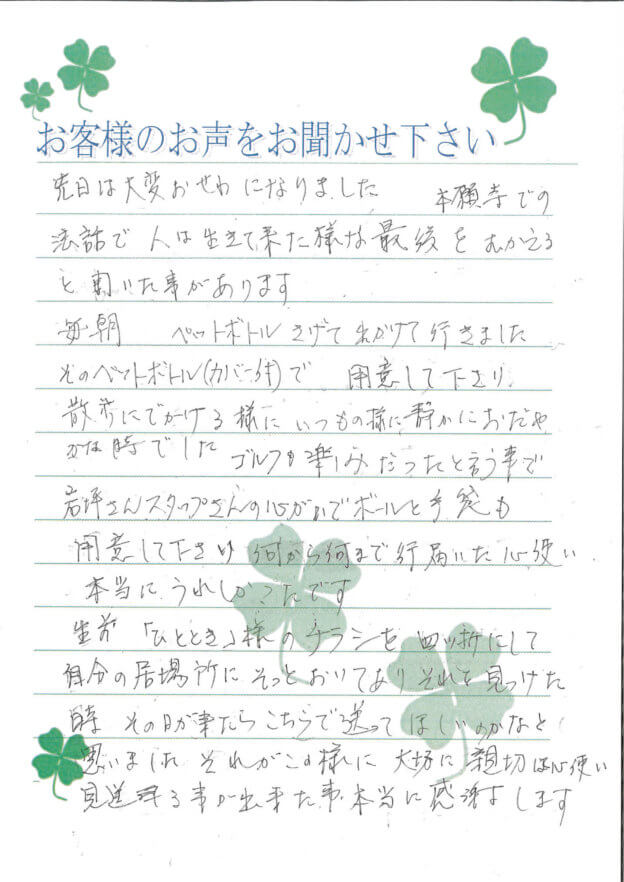 お客様のお声をお聞かせ下さい
先日は大変おせわになりました 本願寺での
法話で 人は生きて来た様な最後をむかえる
と聞いた事があります
毎朝 ペットボトルさげて出かけて行きました
そのペットボトル(カバー付)で 用意して下さり
散歩にでかける様に いつもの様に静かにおだや
かな時でした ゴルフも楽しみだったと言う事で
岩坪さんスタップさんの心がけでボールと手袋も
用意して下さり 何から何まで行届いた心使い
本当に うれしかったです
生前 「ひととき」様のチラシを 四ッ折にして
自分の居場所に そっとおいてあり それを見つけた
時 その日が来たらこちらで送って ほしいのかなと
思いました それがこの様に 大切に 親切な心使い
見送る事が出来た事 本当に感謝します